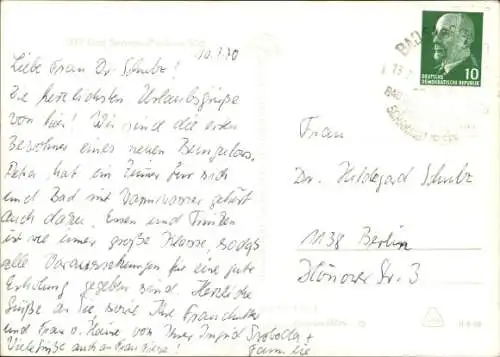 10.7.70
Liebe Frau Dr. Schulz!
Die herzlichsten Urlaubsgrüße
von hier! Wir sind die ersten
Bewohner eines neuen Bungalows.
Peter hat ein Zimmer für sich
und Bad mit Warmwasser gehört
auch dazu. Essen und Trinken
ist wie immer große Klasse, sodaß
alle Voraussetzungen für eine gute
Erholung gegeben sind. Herzliche
Grüße an Sie, sowie Ihr
und Frau v. von Ihrer Ingrid Swoboda +
Familie
Viele Grüße auch an Frau
BAD
DEUTSCHE
DEMOKRATISCHE REPUBLIK
10
Frau
Dr. Hildegard Schulz
1138 Berlin
Hönower Str. 3